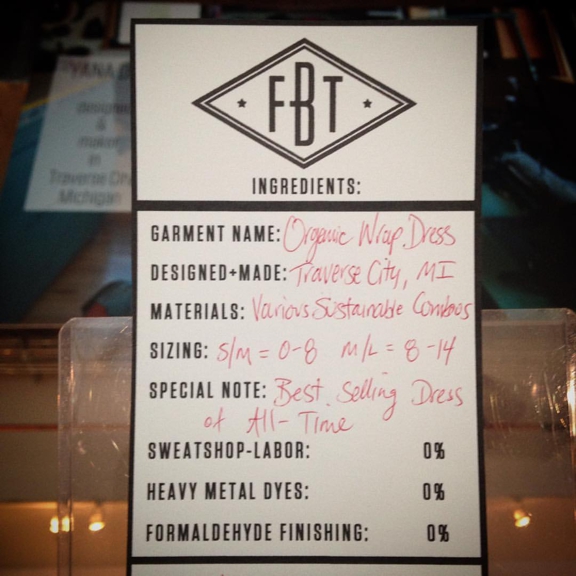 FBT
INGREDIENTS:
GARMENT NAME: Organic Wrap Dress
DESIGNED+MADE: Traverse City, MI
MATERIALS: Various Sustainable Combos
SIZING: S/M = 0-8 M/L = 8-14
SPECIAL NOTE: Best Selling Dress
of All-Time
SWEATSHOP-LABOR: 0%
HEAVY METAL DYES: 0%
FORMALDEHYDE FINISHING: 0%
designed
&
in
Traverse City
Michigan